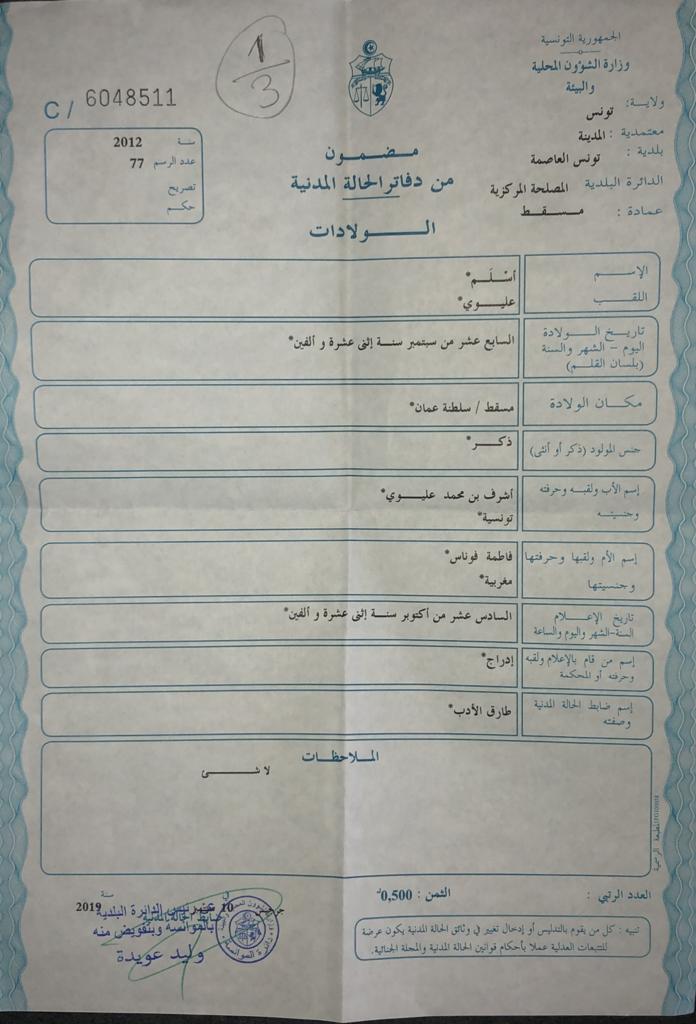 الجمهورية التونسية
وزارة الشؤون المحلية
والبيئة
ولاية: تونس
معتمدية: المدينة
بلدية: تونس العاصمة
الدائرة البلدية المصلحة المركزية
عمادة: مسقط
1/3
C/ 6048511
سنة 2012
عدد الرسم 77
تصريح
حكم
مضمون
من دفاتر الحالة المدنية
الولادات
الإسم أسلم*
اللقب عليوي*
تاريخ الولادة
اليوم - الشهر والسنة
(بلسان القلم)
السابع عشر من سبتمبر سنة إثنى عشرة و ألفين*
مكان الولادة مسقط / سلطنة عمان*
جنس المولود (ذكر أو أنثى) ذكر*
إسم الأب ولقبه وحرفته أشرف بن محمد عليوي*
وجنسيته تونسية*
إسم الأم ولقبها وحرفتها فاطمة فوناس*
وجنسيتها مغربية*
تاريخ الإعلام
السنة-الشهر واليوم والساعة
السادس عشر من أكتوبر سنة إثنى عشرة و ألفين*
إسم من قام بالإعلام ولقبه
وحرفته أو المحكمة
إدراج*
إسم ضابط الحالة المدنية
وصفته
طارق الأدب*
الملاحظات
لا شئ
المطبعة الرسمية
العدد الرتبي :
الثمن : 0,500د
تنبيه : كل من يقوم بالتدليس أو إدخال تغيير في وثائق الحالة المدنية يكون عرضة
للتتبعات العدلية عملا بأحكام قوانين الحالة المدنية والمجلة الجنائية.
في 10 سنة 2019
عن رئيس الدائرة البلدية
ضابط الحالة المدنية
وبتفويض منه
وليد عويدة